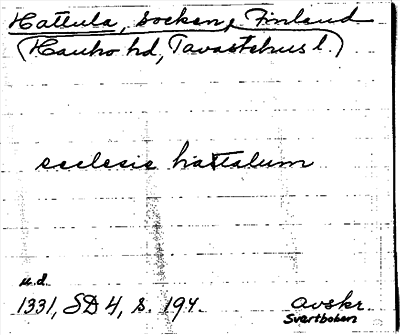 Hattula, socken, Finland
(Hauho hd, Tavastehus l.)
ecclesie hattalum
u.d.
1331, SD 4, s. 194.
avskr.
Svartboken